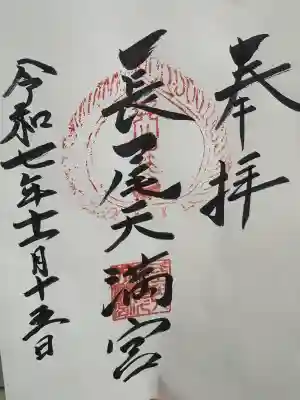 奉拝
長尾天満宮
令和七年十一月十五日